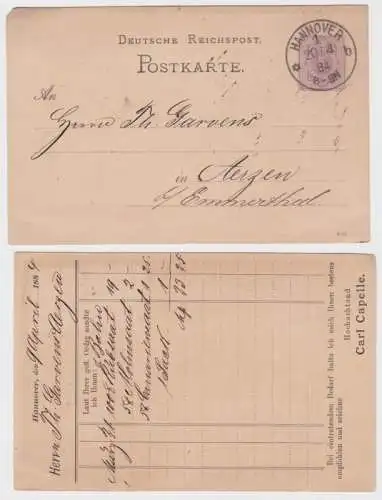 DEUTSCHE REICHSPOST.
POSTKARTE.
HANNOVER
1
20/4
84
An
Herrn Th. Garvens
in Aerzen
b/ Emmerthal.
Hannover, den 9 April 1884
Herrn Th. Garvens Aerzen
Laut Ihrer gefl. Ordre sandte
ich Ihnen: Bahn
März 31. 19
2
1 25
1 Sack 1
M 23 25
Bei eintretendem Bedarf halte ich mich Ihnen bestens
empfohlen und zeichne
Hochachtend
Carl Capelle.